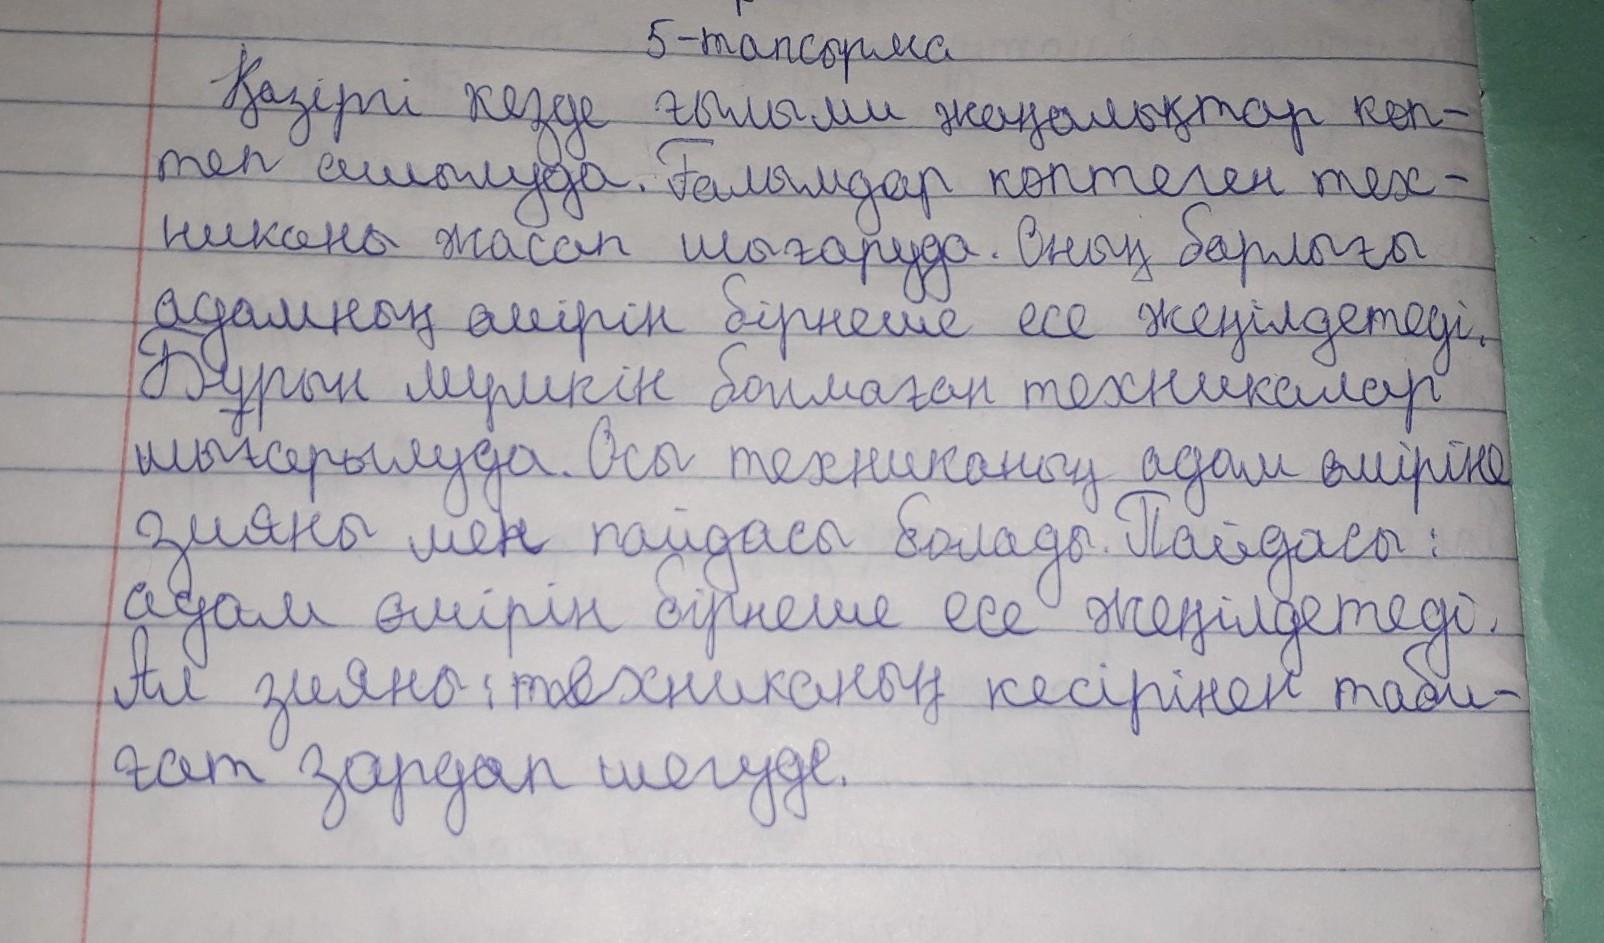 5-тапсырма
Қазіргі кезде ғылыми жаңалықтар көп-
теп ашылуда. Ғалымдар көптеген тех-
никаны жасап шығаруда. Оның барлығы
адамның өмірін бірнеше есе жеңілдетеді.
Бұрын мүмкін болмаған техникалар
шығарылуда. Осы техниканың адам өміріне
зияны мен пайдасы болады. Пайдасы:
адам өмірін бірнеше есе жеңілдетеді.
Ал зияны: техниканың кесірінен таби-
ғат зардап шегуде.